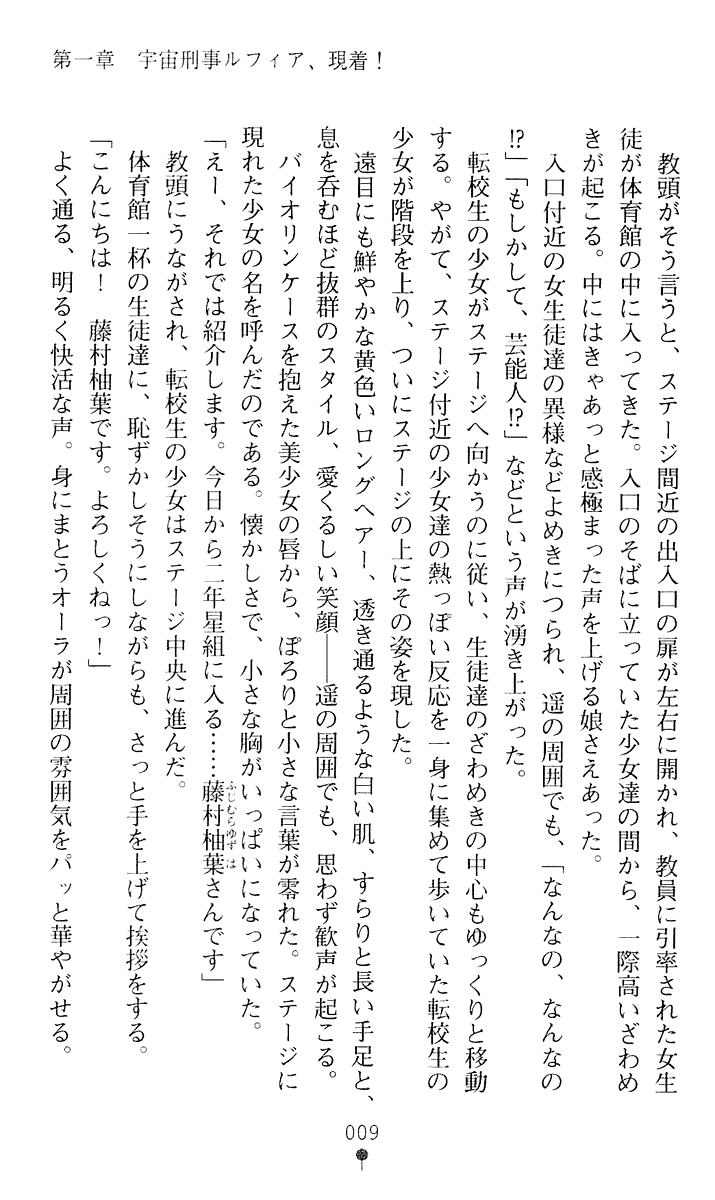 第一章　宇宙刑事ルフィア、現着！
　教頭がそう言うと、ステージ間近の出入口の扉が左右に開かれ、教員に引率された女生
徒が体育館の中に入ってきた。入口のそばに立っていた少女達の間から、一際高いざわめ
きが起こる。中にはきゃあっと感極まった声を上げる娘さえあった。
　入口付近の女生徒達の異様などよめきにつられ、遥の周囲でも、「なんなの、なんなの
!?」「もしかして、芸能人!?」などという声が湧き上がった。
　転校生の少女がステージへ向かうのに従い、生徒達のざわめきの中心もゆっくりと移動
する。やがて、ステージ付近の少女達の熱っぽい反応を一身に集めて歩いていた転校生の
少女が階段を上り、ついにステージの上にその姿を現した。
　遠目にも鮮やかな黄色いロングヘアー、透き通るような白い肌、すらりと長い手足と、
息を呑むほど抜群のスタイル、愛くるしい笑顔――遥の周囲でも、思わず歓声が起こる。
　バイオリンケースを抱えた美少女の唇から、ぽろりと小さな言葉が零れた。ステージに
現れた少女の名を呼んだのである。懐かしさで、小さな胸がいっぱいになっていた。
「えー、それでは紹介します。今日から二年星組に入る……藤村柚葉さんです」
ふじむらゆずは
　教頭にうながされ、転校生の少女はステージ中央に進んだ。
　体育館一杯の生徒達に、恥ずかしそうにしながらも、さっと手を上げて挨拶をする。
「こんにちは！　藤村柚葉です。よろしくねっ！」
　よく通る、明るく快活な声。身にまとうオーラが周囲の雰囲気をパッと華やがせる。
009